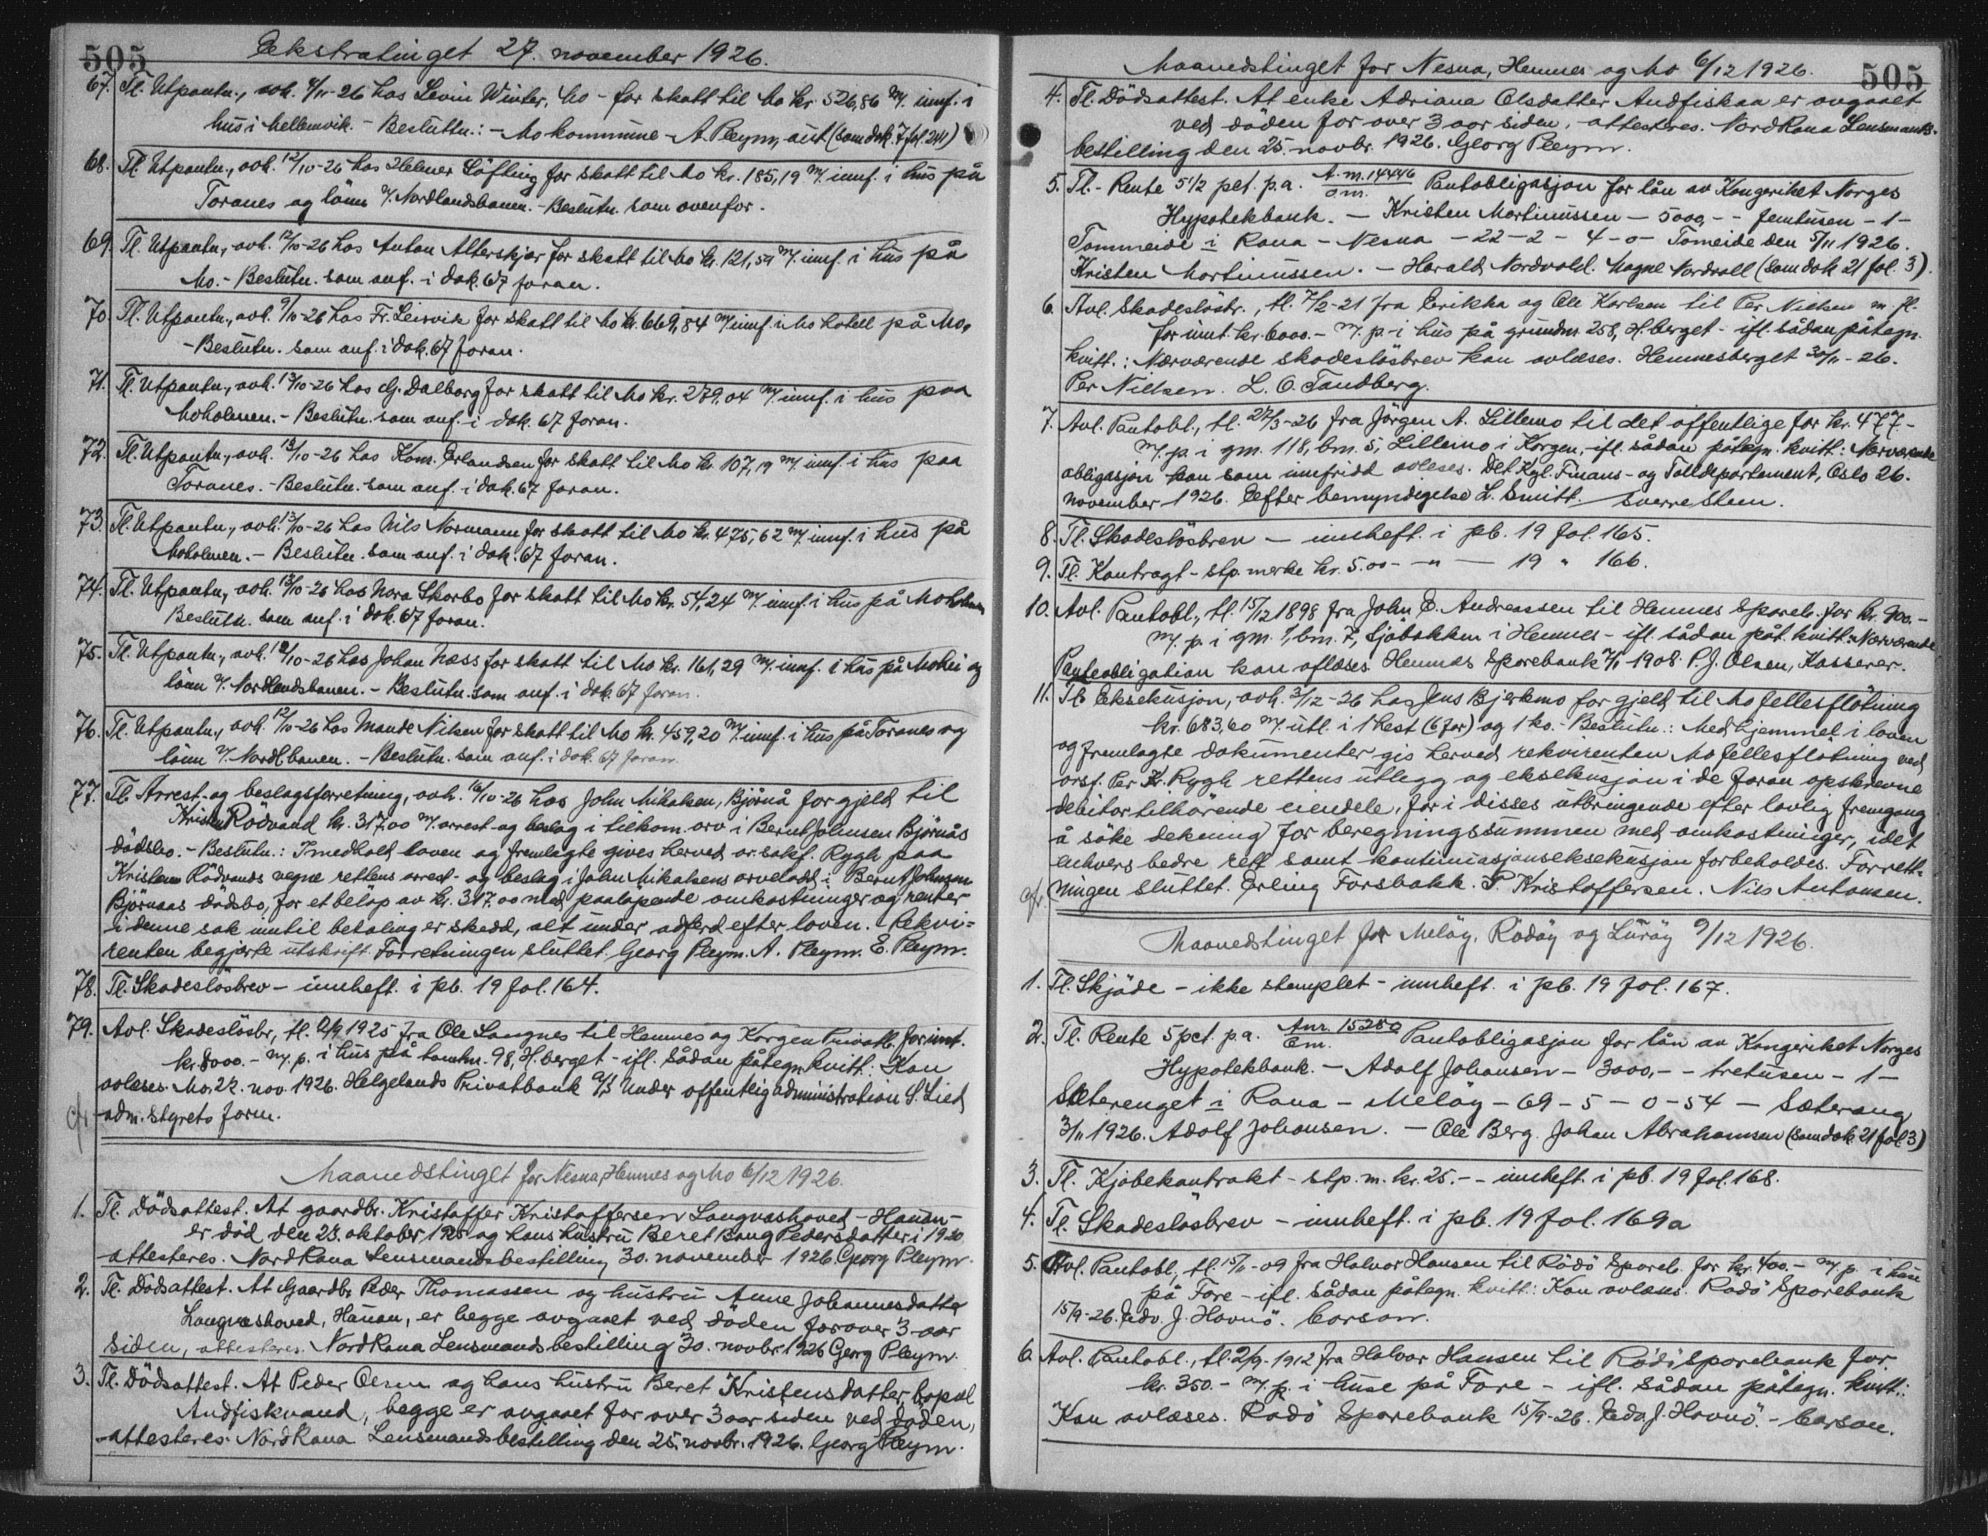 505
Ekstratinget 27. november 1926.
67. Tl. Utpantn., avh. 4/11-26 hos Levin Winter, Mo - for skatt til Mo kr. 526,86 m/ innf. i
hus i Mellemvik. - Beslutn.: - Mo kommune - A. Pleym, aut (som dok. 7 fol. 241)
68. Tl. Utpantn., avh. 12/10-26 hos Helmer Löfting for skatt til Mo kr. 185,19 m/ innf. i hus på
Toranes og lönn v/ Nordlandsbanen. - Beslutn. som ovenfor.
69. Tl. Utpantn., avh. 12/10-26 hos Anton Alterskjær for skatt til Mo kr. 121,59 m/ innf. i hus på
Mo. - Beslutn. som anf. i dok. 67 foran.
70. Tl. Utpantn., avh. 9/10-26 hos Fr. Leirvik for skatt til Mo kr. 669,84 m/ innf. i Mo hotell på Mo.
- Beslutn. som anf. i dok. 67 foran.
71. Tl. Utpantn., avh. 13/10-26 hos G. Dalborg for skatt til Mo kr. 279,04 m/ innf. i hus paa
Moholmen. - Beslutn. som anf. i dok. 67 foran.
72. Tl. Utpantn., avh. 13/10-26 hos Konr. Erlandsen for skatt til Mo kr. 107,19 m/ innf. i hus paa
Toranes. - Beslutn. som anf. i dok. 67 foran.
73. Tl. Utpantn., avh. 13/10-26 hos Nils Normann for skatt til Mo kr. 475,62 m/ innf. i hus på
Moholmen. - Beslutn. som anf. i dok. 67 foran.
74. Tl. Utpantn., avh. 13/10-26 hos Nora Skorbo for skatt til Mo kr. 54,24 m/ innf. i hus på Moholmen
Beslutn. som anf. i dok. 67 foran.
75. Tl. Utpantn., avh. 12/10-26 hos Johan Næss for skatt til Mo kr. 161,29 m/ innf. i hus på Mohei og
lönn v/ Nordlandsbanen. - Beslutn. som anf. i dok. 67 foran.
76. Tl. Utpantn., avh. 12/10-26 hos Mande Nilsen for skatt til Mo kr. 459,20 m/ innf. i hus på Toranes og
lönn v/ Nordlbanen. - Beslutn. som anf. i dok. 67 foran
77. Tl. Arrest- og beslagsforretning, avh. 16/10-26 hos John Mikalsen, Bjørnå for gjeld til
Kristen Rödvand kr. 317.00 m/ arrest- og beslag i tilkom. arv i Bernt Johnsen Bjørnås
dödsbo. - Beslutn.: I medhold loven og fremlagte gives herved or.sakf. Rygh paa
Kristen Rödvands vegne rettens arrest- og beslag i John Mikalsens arvelodd i Bernt Johnsen
Björnaas dödsbo, for et belöp av kr. 317.00 med paalöpende omkostninger og renter
i denne sak inntil betaling er skedd, alt under adferd efter loven. Rekvi-
renten begjærte utskrift. Forretningen sluttet. Georg Pleym. A. Pleym. E. Pleym.
78. Tl. Skadeslösbrev - innheft. i pb. 19 fol. 164.
79. Avl. Skadeslösbr., tl. 2/9 1925 fra Ole Langnes til Hemnes og Korgen Privatb. for innt.
kr. 8000.- m/ p. i hus på tomtnr. 98, H.berget - ifl. sådan påtegn. kvitt.: Kan
avlæses. Mo. 22. nov. 1926. Helgelands Privatbank A/S Under offentlig administration S. Lied
adm. styrets form.
Maanedstinget for Nesna, Hemnes og Mo 6/12 1926.
1. Tl. Dödsattest. At gaardbr. Kristoffer Kristoffersen Langvashoved - Hauan -
er död den 23. oktober 1925 og hans hustru Beret Bang Pedersdatter i 1920
attesteres. Nord Rana Lensmandsbestilling 30. november 1926 Georg Pleym.
2. Tl. Dödsattest. At Gaardbr. Peder Thomassen og hustru Anne Johannesdatter
Langvashoved, Hauan, er begge avgaaet ved döden for over 3 aar
siden, attesteres. Nord Rana Lensmandsbestilling 30. novbr. 1926 Georg Pleym.
3. Tl. Dödsattest. At Peder Olsen og hans hustru Beret Kristensdatter bopæl
Andfiskvand, begge er avgaaet for over 3 aar siden ved döden,
attesteres. Nord Rana Lensmandsbestilling den 25. novbr. 1926. Georg Pleym.
505
Maanedstinget for Nesna, Hemnes og Mo 6/12 1926.
4. Tl. Dödsattest. At enke Adriana Olsdatter Andfiskaa er avgaaet
ved döden for over 3 aar siden, attesteres. Nord Rana Lensmands-
bestilling den 25. novbr. 1926. Georg Pleym.
5. Tl. - Rente 5 1/2 pct. p.a. A.nr. 14446 / Om. Pantobligasjon for lån av Kongeriket Norges
Hypotekbank. - Kristen Martinussen - 5000 - - femtusen - 1 -
Tommeide i Rana - Nesna - 22 - 2 - 4 - 0 - Tömeide den 5/11 1926.
Kristen Martinussen. - Harald Nordvold. Magne Nordvoll (som dok 21 fol. 3).
6. Avl. Skadeslösbr., tl. 7/2-21 fra Erikka og Ole Karlsen til Per Nielsen m. fl.
for innt. kr. 6000.- m/ p. i hus på grundnr. 258, H.berget - ifl. sådan påtegn.
kvitt.: Nærværende skadeslösbrev kan avlæses. Hemnesberget 30/11-26.
Per Nielsen. L. O. Tandberg.
7. Avl. Pantobl., tl. 27/3-26 fra Jörgen A. Lillemo til det offentlige for kr. 477.-
m/ p. i gnr. 118, bnr. 5, Lillemo i Korgen, ifl. sådan påtegn. kvitt.: Nærværende
obligasjon kan som innfridd avleses. Det Kgl. Finans- og Tolldepartement, Oslo 26.
november 1926. Efter bemyndigelse L. Smitt. Sverre Steen.
8. Tl. Skadeslösbrev - innheft. i pb. 19 fol. 165.
9. Tl. Kontragt - stp. merke kr. 5.00 - " - 19 " 166.
10. Avl. Pantobl., tl. 15/12 1898 fra John E. Andreassen til Hemnes Spareb. for kr. 900.-
m/ p. i gnr. 1, bnr. 7, Sjöbakken i Hemnes - ifl. sådan påt. kvitt.: Nærværende
Panteobligation kan aflæses Hemnes Sparebank 7/1 1908. P. J. Olsen, Kasserer.
11. Tl. Eksekusjon, avh. 3/12-26 hos Jens Bjerkmo for gjeld til Mo fellesflötning
kr. 683,60 m/ utl. i 1 hest (6 år) og 1 ko. - Beslutn.: Med hjemmel i loven
og fremlagte dokumenter gis herved rekvirenten Mo fellesflotning ved
orsf. Per Kr. Rygh rettens utlegg og eksekusjon i de foran opskrevne
debitor tilhörende eiendele, for i disses utbringende efter lovlig fremgang
å söke dekning for beregningssummen med omkostninger, idet
enhvers bedre rett samt kontinuasjonseksekusjon forbeholdes. Forrett-
ningen sluttet. Erling Forsbakk. P. Kristoffersen. Nils Antonsen.
Maanedstinget for Melöy, Rödöy og Luröy 9/12 1926.
1. Tl. Skjöde - ikke stemplet - innheft. i pb. 19 fol. 167.
2. Tl. Rente 5 pct. p.a. Anr. 15250 / Em. Pantobligasjon for lån av Kongeriket Norges
Hypotekbank. - Adolf Johansen - 3000,- - tretusen - 1 -
Sæterenget i Rana - Melöy - 69 - 5 - 0 - 54 - Sæterang
3/11 1926. Adolf Johansen. - Ole Berg. Johan Abrahamsen (som dok 21 fol. 3)
3. Tl. Kjöbekontrakt - stp. m. kr. 25.- - innheft. i pb. 19 fol. 168.
4. Tl. Skadeslösbrev - innheft. i pb. 19 fol. 169a
5. Avl. Pantobl., tl. 15/11-09 fra Halvor Hansen til Rödö Spareb. for kr. 400.- m/ p. i huse
på Fore - ifl. sådan påtegn. kvitt.: Kan avlæses. Rödö Sparebank
15/9-26. Edv. J. Havnö. Carson.
6. Avl. Pantobl., tl. 2/9-1912 fra Halvor Hansen til Rödö Sparebank for
kr. 350.- m/ p. i huse på Fore - ifl. sådan påtegn. kvitt.:
Kan avlæses. Rödö Sparebank 15/9-26. Edv. J. Havnö. - Carson.